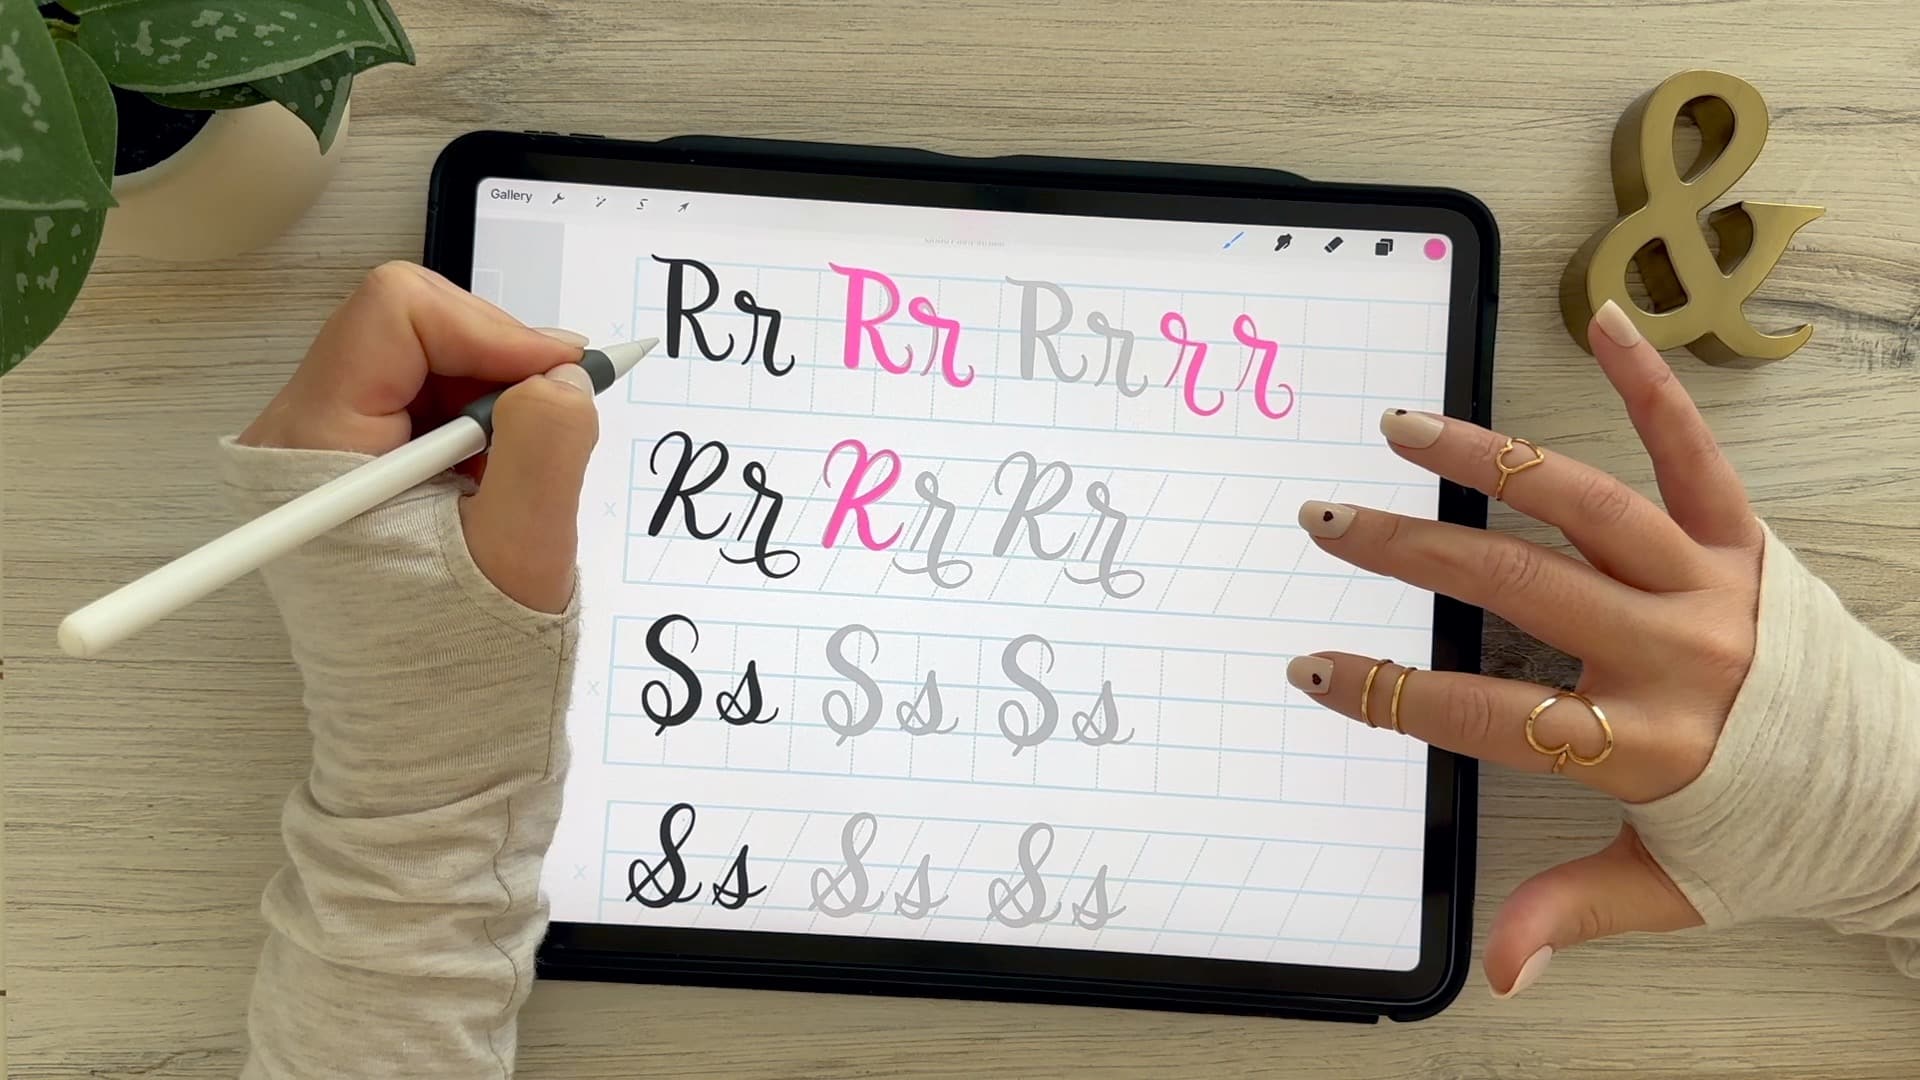 Gallery
Rr Rr Rr r r
Rr Rr Rr
Ss Ss Ss
Ss Ss Ss
&